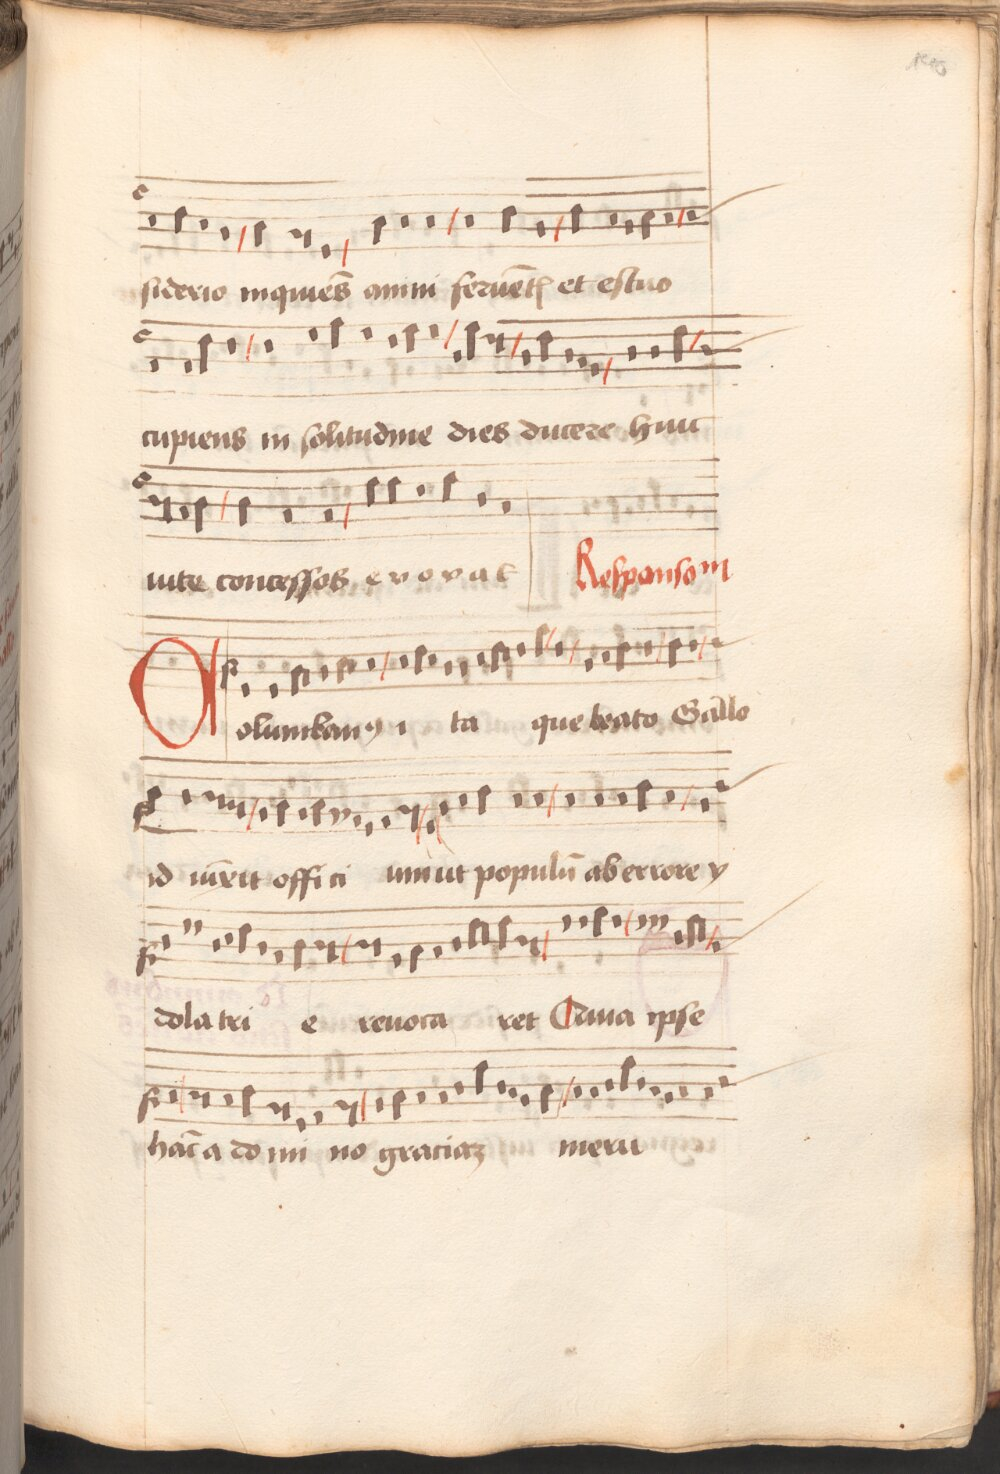 siderio inquiens animi ferue̅t et estuo
cupiens in solitudine dies ducere huic
uite concessos e v o v a e
Responsom
Columban9 i ta que beato Gallo
id iu̅xit offi ci um ut populu̅ ab errore y
dola tri e reuoca ret Qaua ipse
hac̅ a do mi no graciaz meru